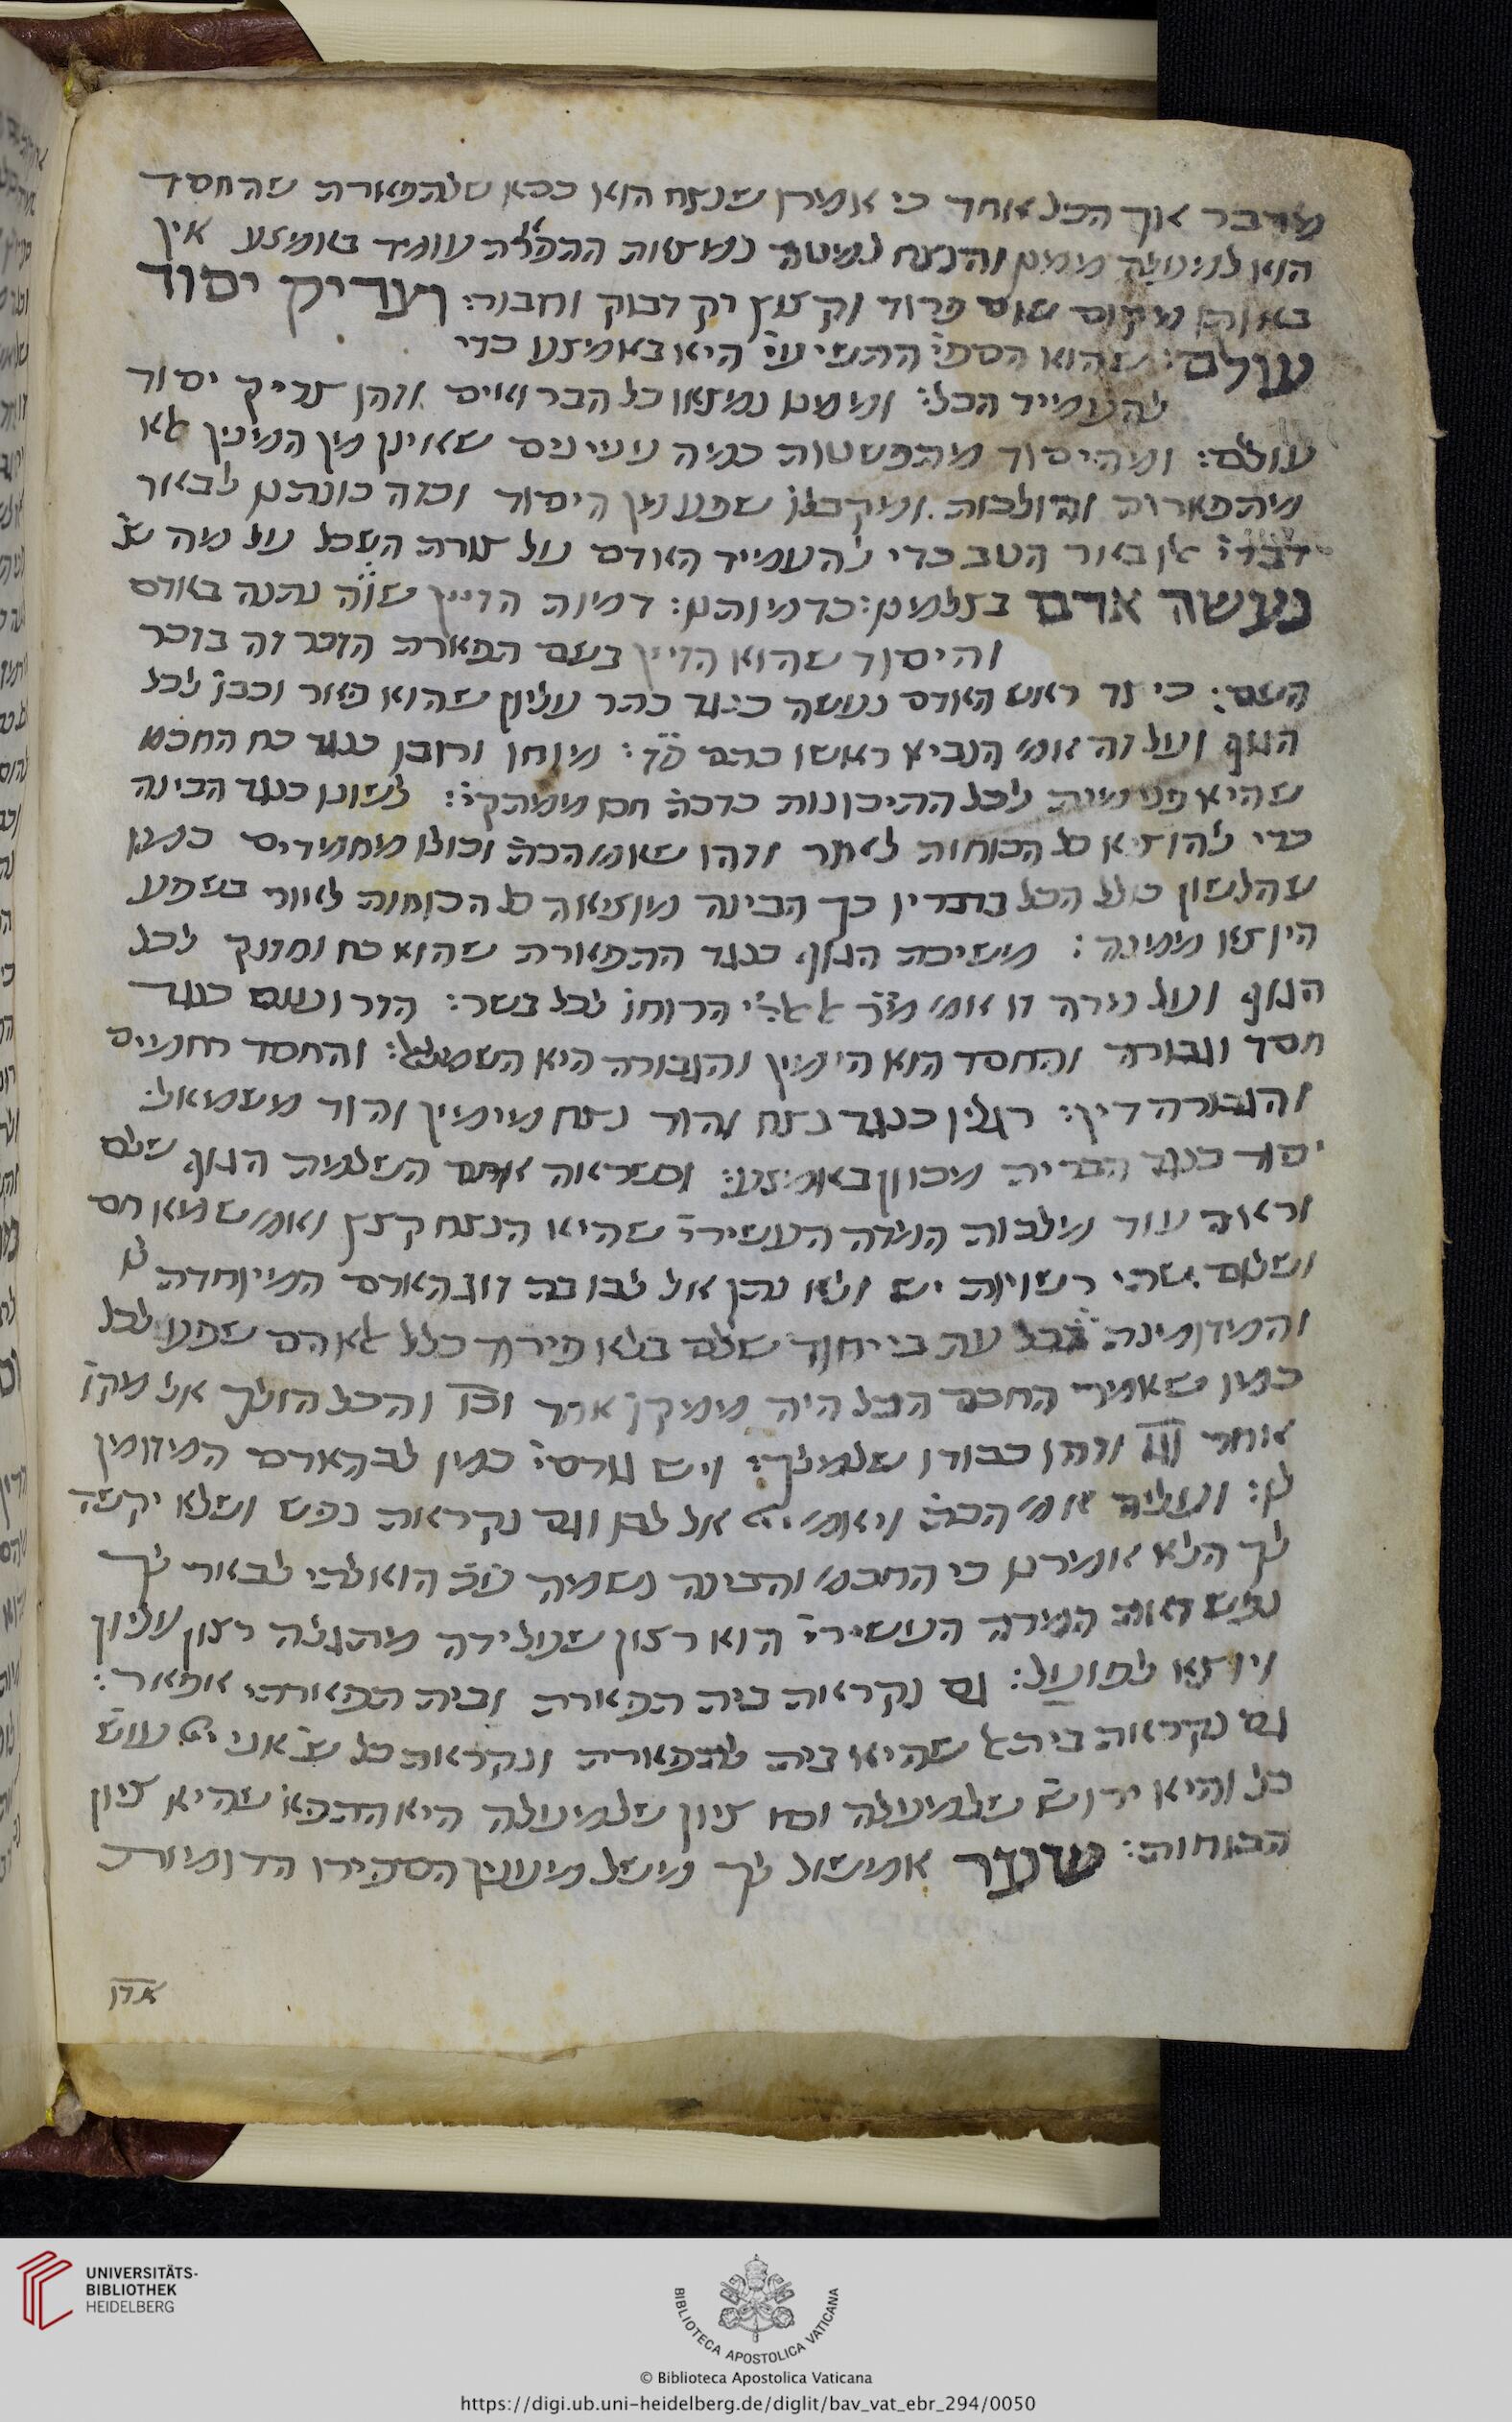 מדבר אך הכל אחד כי אמרו שנצח הוא כסא שלתפארת שהחסד
הוא למעלה ממנו והנצח למטה נמצאת התפארת עומד באמצע אין
באותו מקום שום פרוד וקצוץ רק דבוק וחבור: וצדיק יסוד
עולם: שהוא הספי' התשיעי' היא באמצע כדי
להעמיד הכל: וממנו נמצאו כל הברואים וזהו צדיק יסוד
עולם: ומהיסוד מתפשטות כמה עניינים שאינן מן המניין לא
מתפארת והולכות ומקבלין שפע מן היסוד וכזה כונתנו לבאר
באור הטב כדי להעמיד האדם על צורת השכל על מה
נעשה אדם בצלמינו: כדמותנו: דמות הדיין נתנה באדם
והיסוד שהוא הדיין בשם תפארת הזכר זה בזכר
השם: כי צד ראש האדם נעשה כנגד כתר עליון שהוא פאר וכבוד לכל
הגוף ועל זה אומ' הנביא ראשו כתם פז: מוחו ורובו כנגד כח החכמה
שהיא פנימית לכל התיכונות כדכת' חכו ממתקי': לשונו כנגד הבינה
כדי להוציא כל הכוחות לאחר וזהו שאומ' הכת' וכולו מחמדים כמו
שהלשון כולל הכל בדברין כך הבינה מוציאה כל הכוחות לאור בשפע
היוצא ממנה: משיכת הגוף כנגד התפארת שהוא כח וחוזק לכל
הגוף ועל מדה זו אומ' אלהי הרוחות לכל בשר: הזרועות כנגד
חסד וגבורה והחסד הוא הימין והגבורה היא השמאל: והחסד רחמים
והגבורה דין: רגלין כנגד נצח והוד נצח מימין והוד משמאל:
יסוד כנגד הברית מכוון באמצע: וכשראה אותם השלמת הגוף שלם
וראה עוד מלכות המדה העשירי' שהיא הנצח קצץ ואומ' שמא חס
ושלום שתי רשויות יש ולא נתן אל לבו בת זוג האדם המיוחדת לו
והמזדמינת בכל עת ביחוד שלם בלא פירוד כלל לא הם שפע לכל
כמו שאמר החכם הכל היה ממקו' אחד והכל הולך אל מקו'
אחד וזהו כבודו שלמלך: ויש גורסי' כמין לב האדם המיוחדין
לו: ועליה אומ' הכת' ויאמ' יי' אל לבו וגם נקראת נפש ושלא יקשה
לך הלא אמרנו כי החכמ' והבינה נשמה הואלתי לבאר לך
נפש זאת המדה העשירי' הוא רצון שעולידה מתגלה רצון עליון
ויוצא לפועל: גם נקראת בית תפארת ובית תפארתי אפאר:
גם נקראת בית אל שהיא בית לתפארת ונקראת כל שנ' אני יי' עוש'
כל והיא ירוש' שלמעלה וכח ציון שלמעלה היא התפא' שהיא ציון
הכוחות: שער אמשול לך משל מענין הספירו הדומיות
אדו
UNIVERSITÄTS-
BIBLIOTHEK
HEIDELBERG
BIBLIOTECA APOSTOLICA VATICANA
© Biblioteca Apostolica Vaticana
https://digi.ub.uni-heidelberg.de/diglit/bav_vat_ebr_294/0050